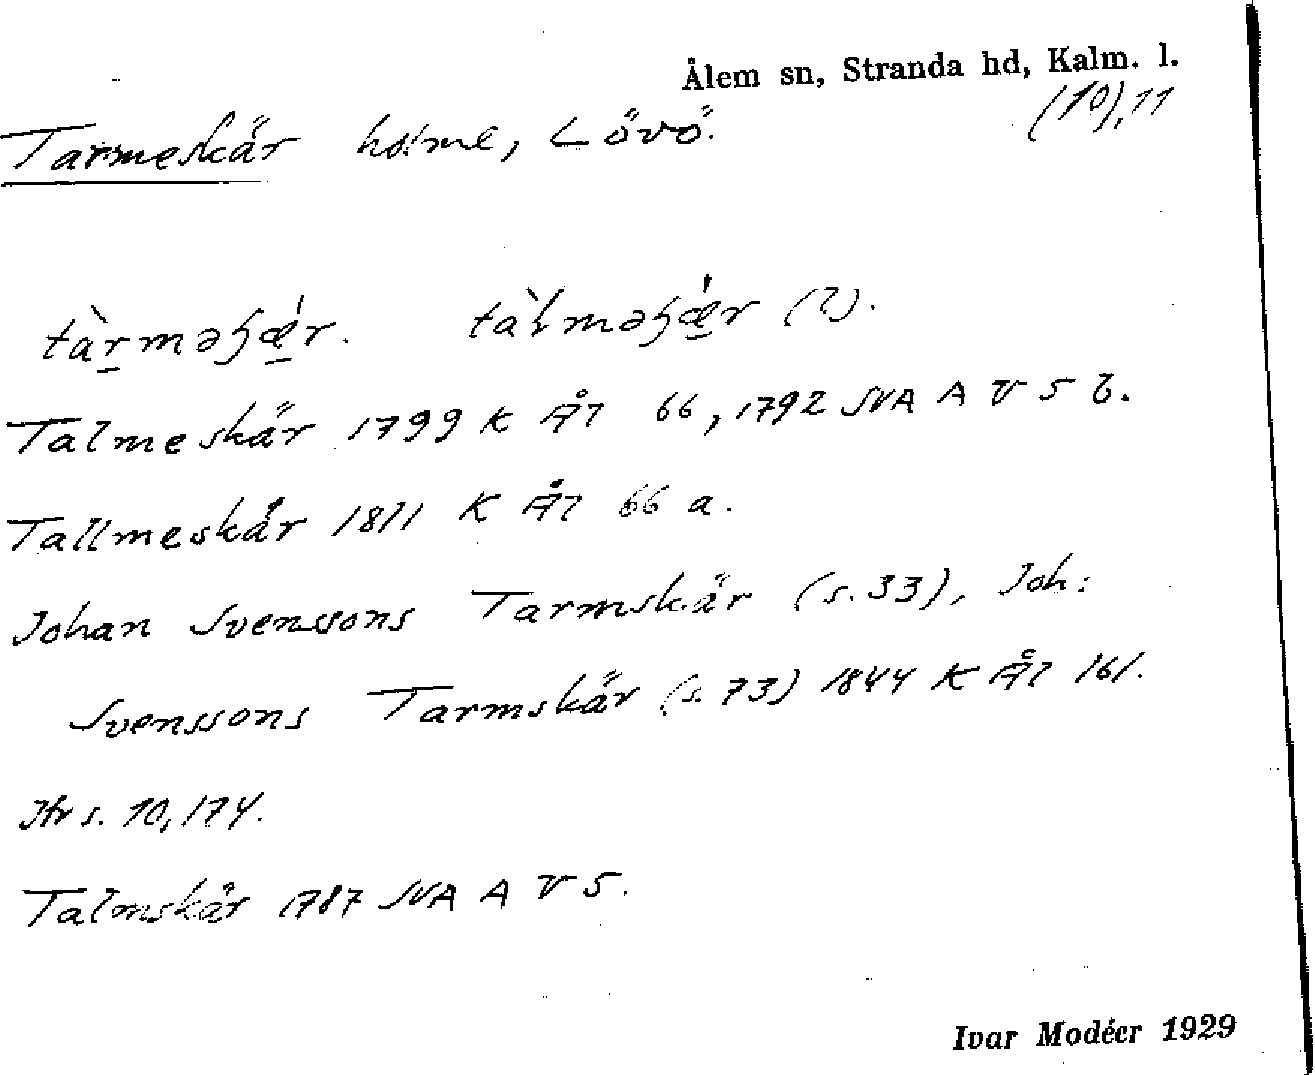 Ålem sn, Stranda hd, Kalm. l.
(10), 11
Tarmeskär holme, Lövö.
tàrməʃǽr. tàlməʃǽr (?).
Talmeskär 1799 K Ål 66, 1792 SVA A V 5 b.
Tallmeskär 1811 K Ål 66 a.
Johan Svenssons Tarmskär (s. 33), Joh:
Svenssons Tarmskär (s. 73) 1844 K Ål 161.
Jfr s. 10, 174.
Talmskär 1787 SVA A V 5.
Ivar Modéer 1929